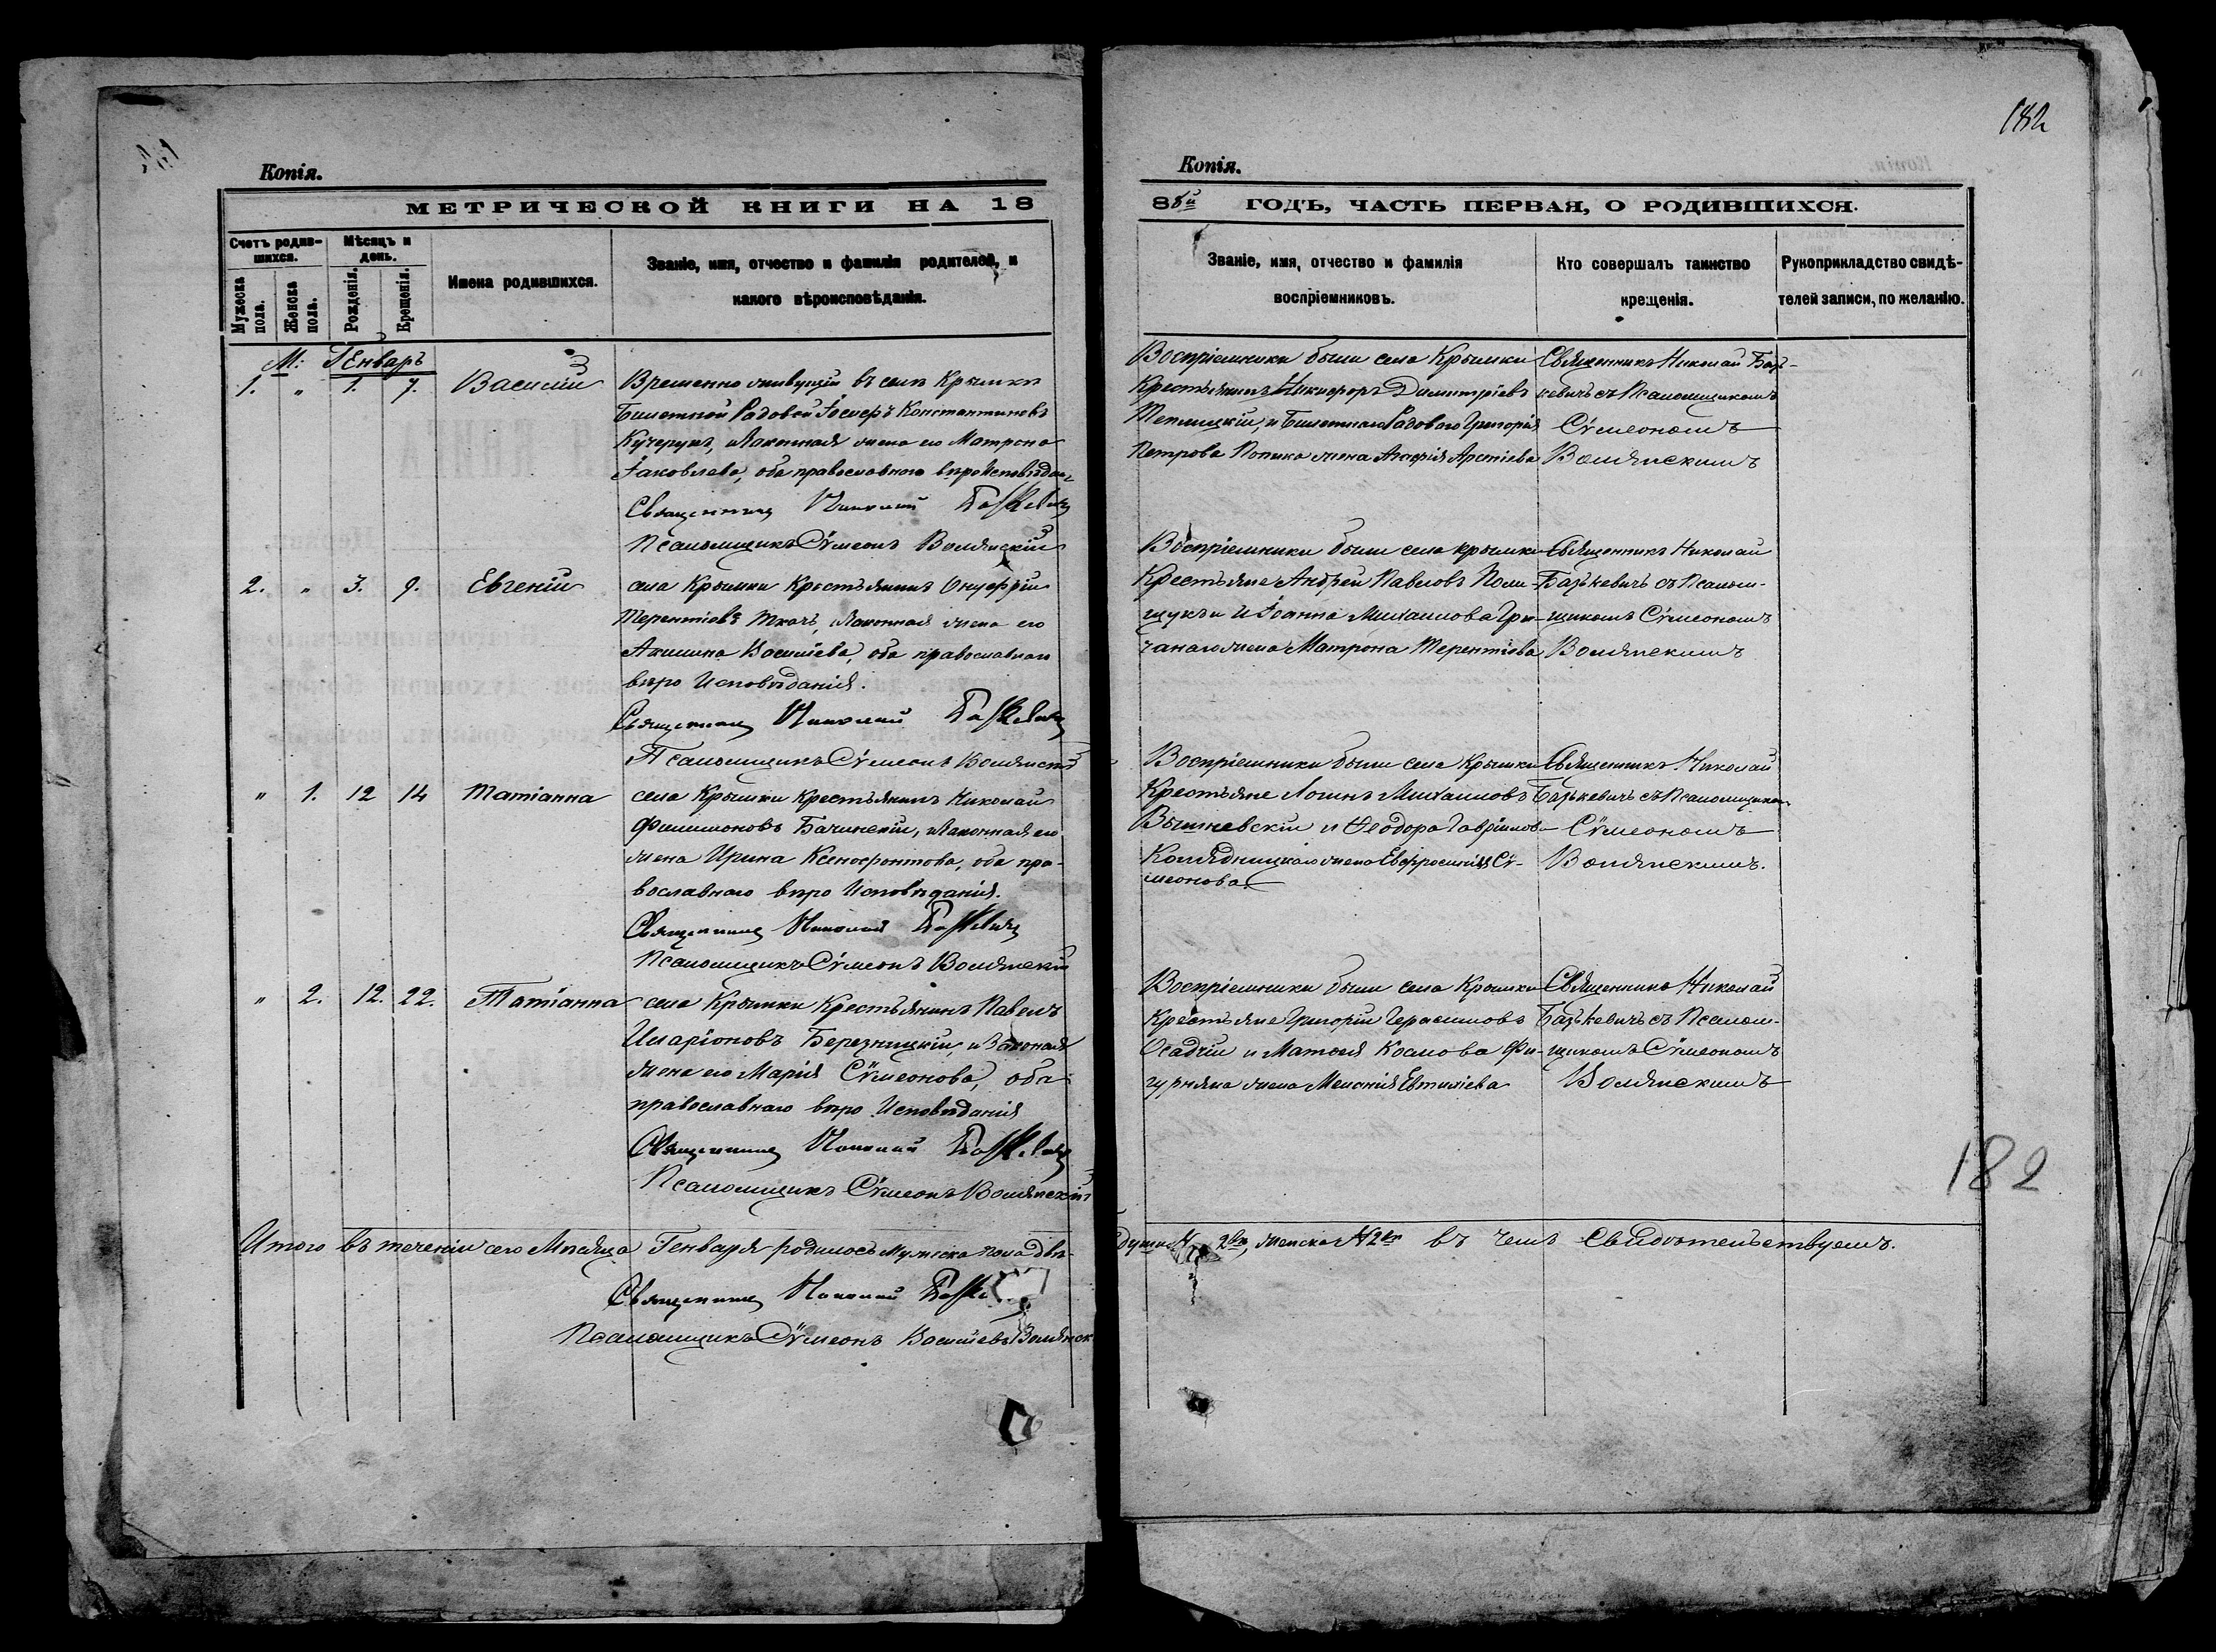 182
Копія.
МЕТРИЧЕСКОЙ КНИГИ НА 18
Счетъ родив-
шихся.
Мѣсяцъ и
день.
Мужеска
пола.
Женска
пола.
Рожденія.
Крещенія.
Имена родившихся.
Званіе, имя, отчество и фамилія родителей, и
какого вѣроисповѣданія.
М: Генварь
1. " 1. 7. Василій
Временно живущій въ селѣ Крымки
Билетной Рядовой Іосифъ Константиновъ
Кучерукъ, и Законная жена его Матрона
Іаковлева, оба православнаго вѣроисповѣдан
Священникъ Николай Базкевичъ
Псаломщикъ Сѵмеонъ Волянскій
2. " 3. 9. Евгеній
села Крымки Крестьянинъ Онуфрій
Терентіевъ Ткачъ, и Законная жена его
Акилина Василіева, оба православнаго
вѣро Исповѣданія.
Священникъ Николай Базкевичъ
Псаломщикъ Сѵмеонъ Волянскій
" 1. 12 14 Татіанна
села Крымки Крестьянинъ Николай
Филимоновъ Бачинскій, и Законная его
жена Ирина Ксенофонтова, оба пра-
вославнаго вѣро Исповѣданія.
Священникъ Николай Базкевичъ
Псаломщикъ Сѵмеонъ Волянскій
" 2. 12. 22. Татіанна
села Крымки Крестьянинъ Павелъ
Иларіоновъ Березницкій, и Законная
жена его Марія Сѵмеонова, оба
православнаго вѣро Исповѣданія
Священникъ Николай Базкевичъ
Псаломщикъ Сѵмеонъ Волянскій
Итого въ теченіи сего Мѣсяца Генваря родилось Мужеска пола двѣ
Священникъ Николай
Псаломщикъ Сѵмеонъ Василіевъ Волянск
Копія.
86й ГОДЪ, ЧАСТЬ ПЕРВАЯ, О РОДИВШИХСЯ.
Званіе, имя, отчество и фамилія
воспріемниковъ.
Кто совершалъ таинство
крещенія.
Рукоприкладство свидѣ-
телей записи, по желанію.
Воспріемники были села Крымки
Крестьянинъ Никифоръ Димитріевъ
Теплицкій, и Билетнаго Рядоваго Григорія
Петрова Попика жена Агафія
Священникъ Николай Базь-
кевичъ съ Псаломщикомъ
Сѵмеономъ
Волянскимъ
Воспріемники были села Крымки
Крестьяне Андрей Павловъ Поли-
щукъ и Іоанна Михаилова Гри-
чанаго жена Матрона Терентіева
Священникъ Николай
Базькевичъ съ Псалом-
щикомъ Сѵмеономъ
Волянскимъ
Воспріемники были села Крымки
Крестьяне Логинъ Михаиловъ
Вышневскій и Ѳеодора Гавріилова
Колядницкаго жена Евфросинія Сѵ-
меонова
Священникъ Николай
Базькевичъ съ Псаломщиком
Сѵмеономъ
Волянскимъ.
Воспріемники были села Крымки
Крестьяне Григорій Герасимовъ
Осадчій и Матѳея Космова Фи-
гурняка жена Меланія Евтихіева
Священникъ Николай
Базькевичъ съ Псалом-
щикомъ Сѵмеономъ
Волянскимъ
182
души 2ва, женска № 2ве въ чемъ Свидѣтельствуемъ.